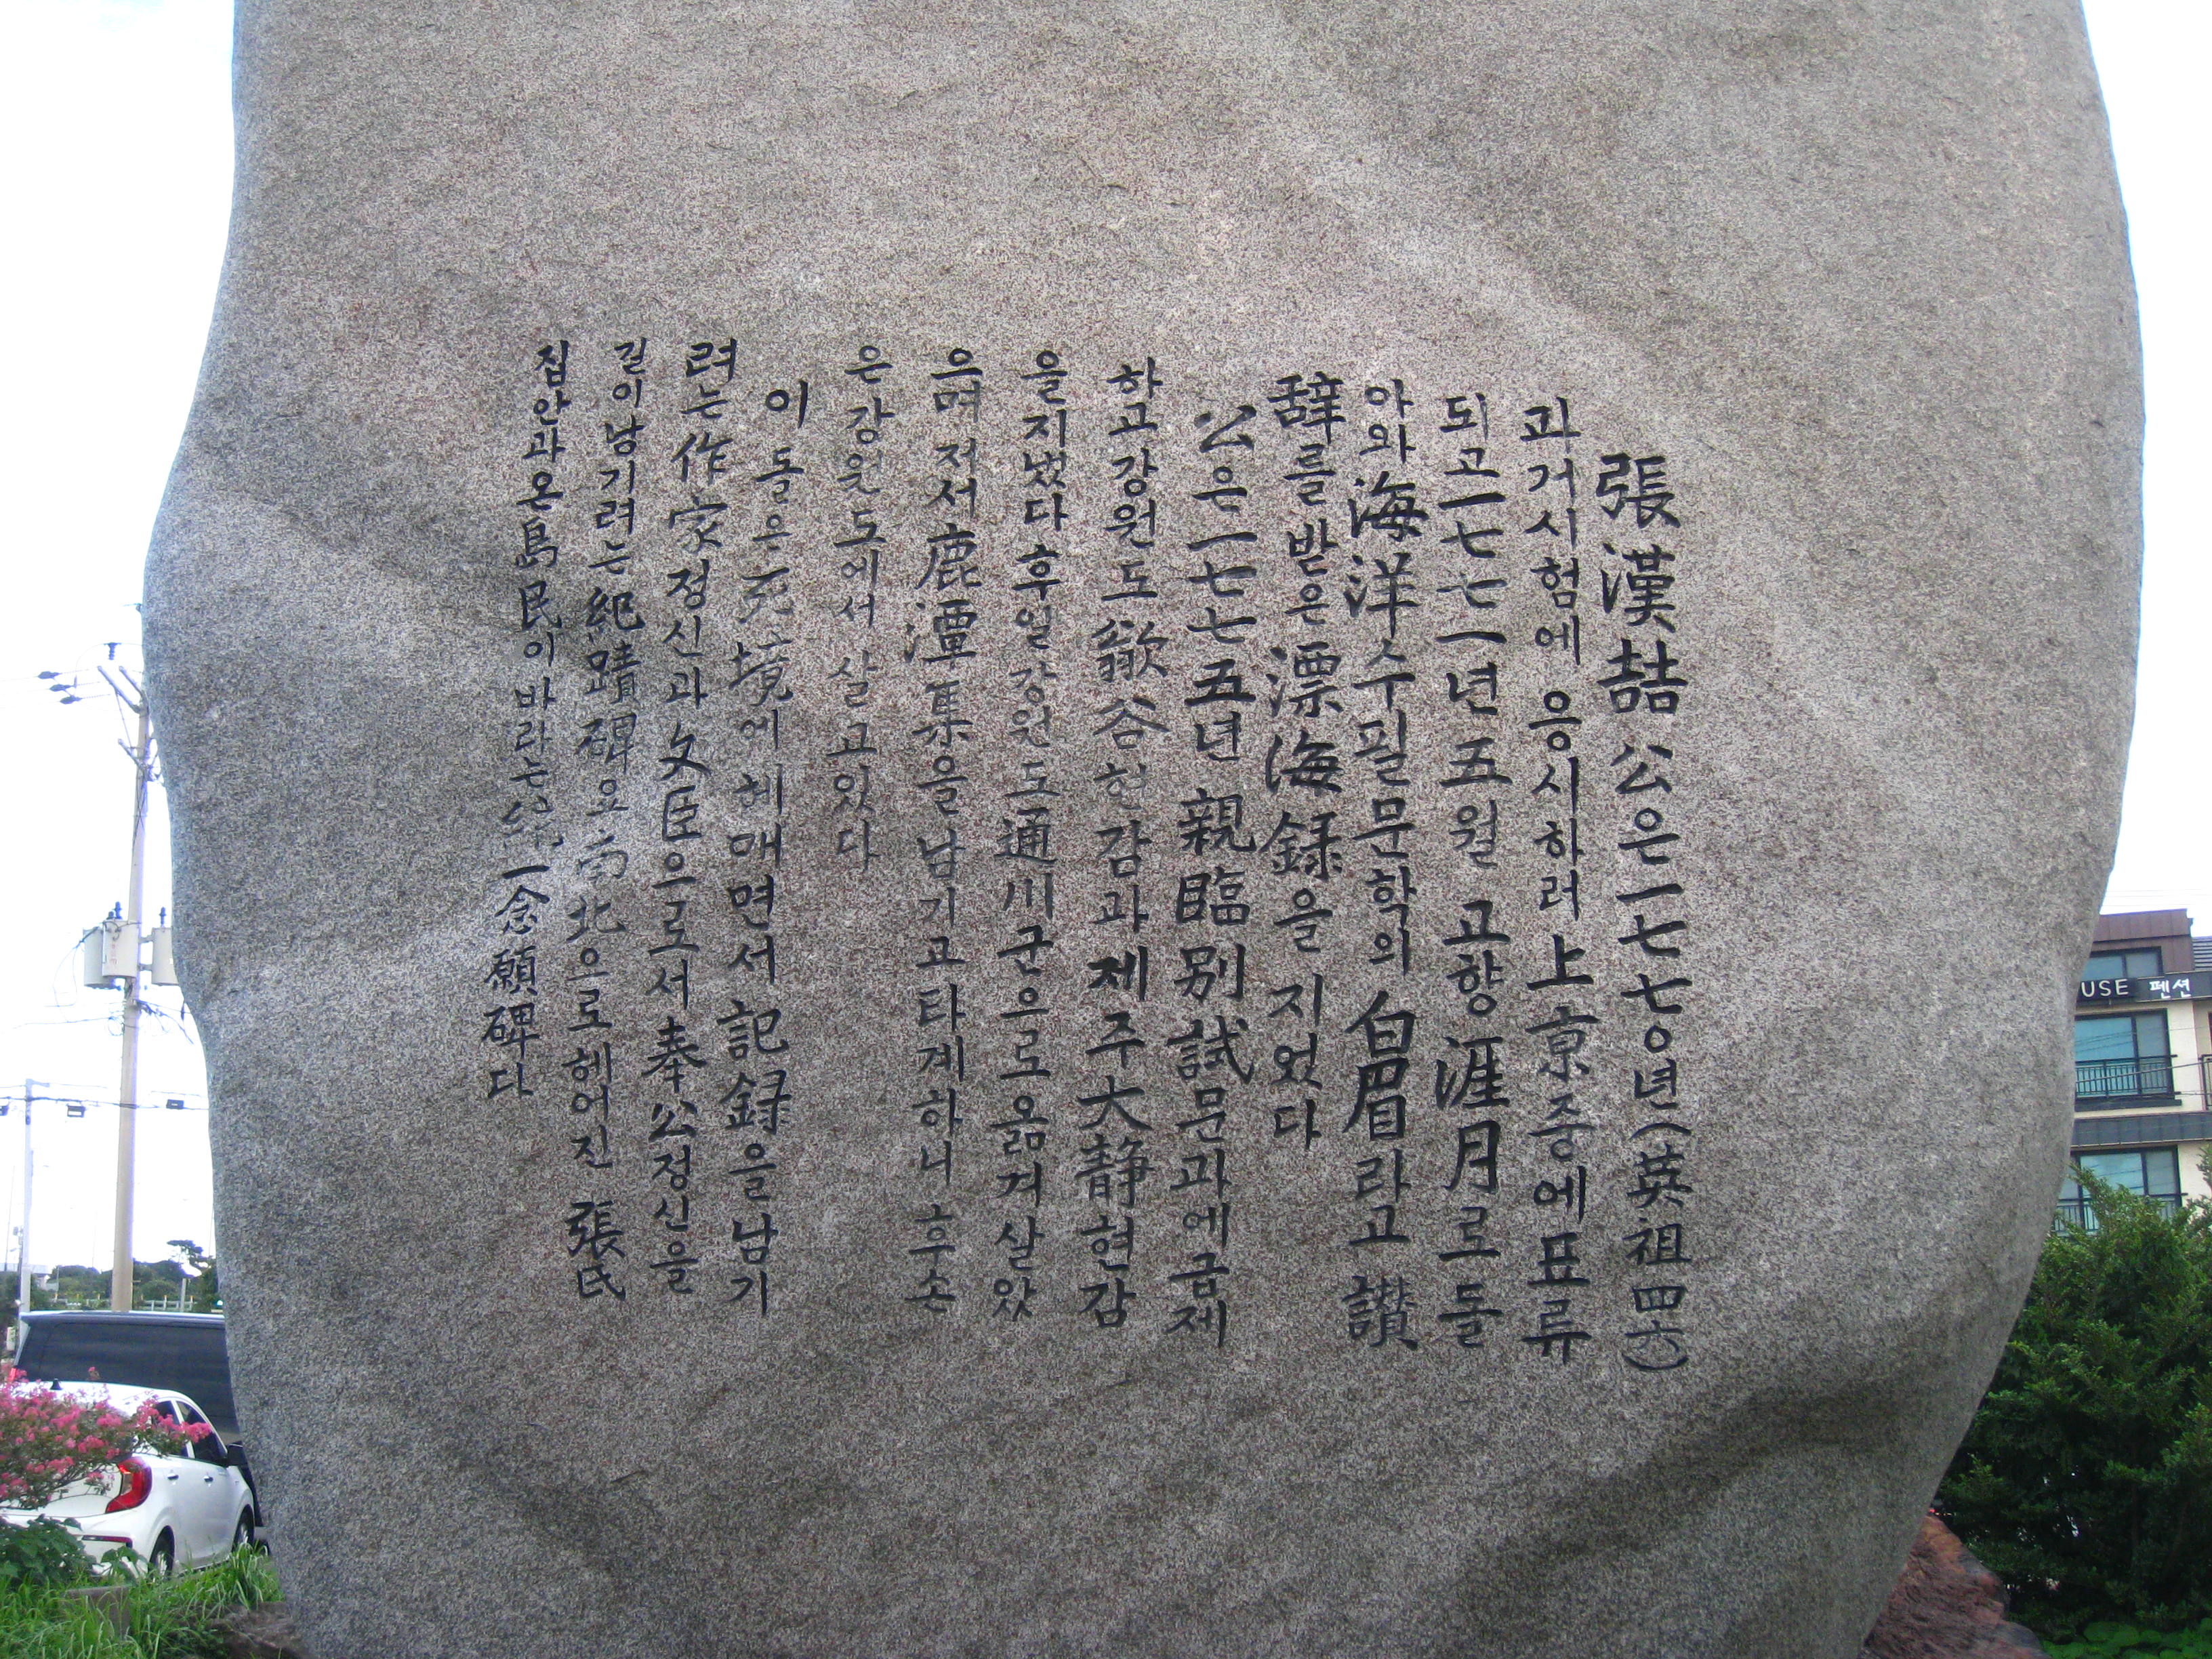 張漢喆 公은 一七七○년(英祖四六)
과거시험에 응시하러 上京중에 표류
되고 一七七一년 五월 고향 涯月로 돌
아와 海洋수필문학의 白眉라고 讚
辞를 받은 漂海録을 지었다
公은 一七七五년 親臨別試문과에 급제
하고 강원도 歙谷현감과 제주 大静현감
을 지냈다 후일 강원도 通川군으로 옮겨 살았
으며 저서 鹿潭集을 남기고 타계하니 후손
은 강원도에서 살고있다
이 돌은 死境에 헤매면서 記録을 남기
려는 作家정신과 文臣으로서 奉公정신을
길이 남기려는 紀蹟碑요 南北으로 헤어진 張氏
집안과 온 島民이 바라는 統一念願碑다
USE 펜션